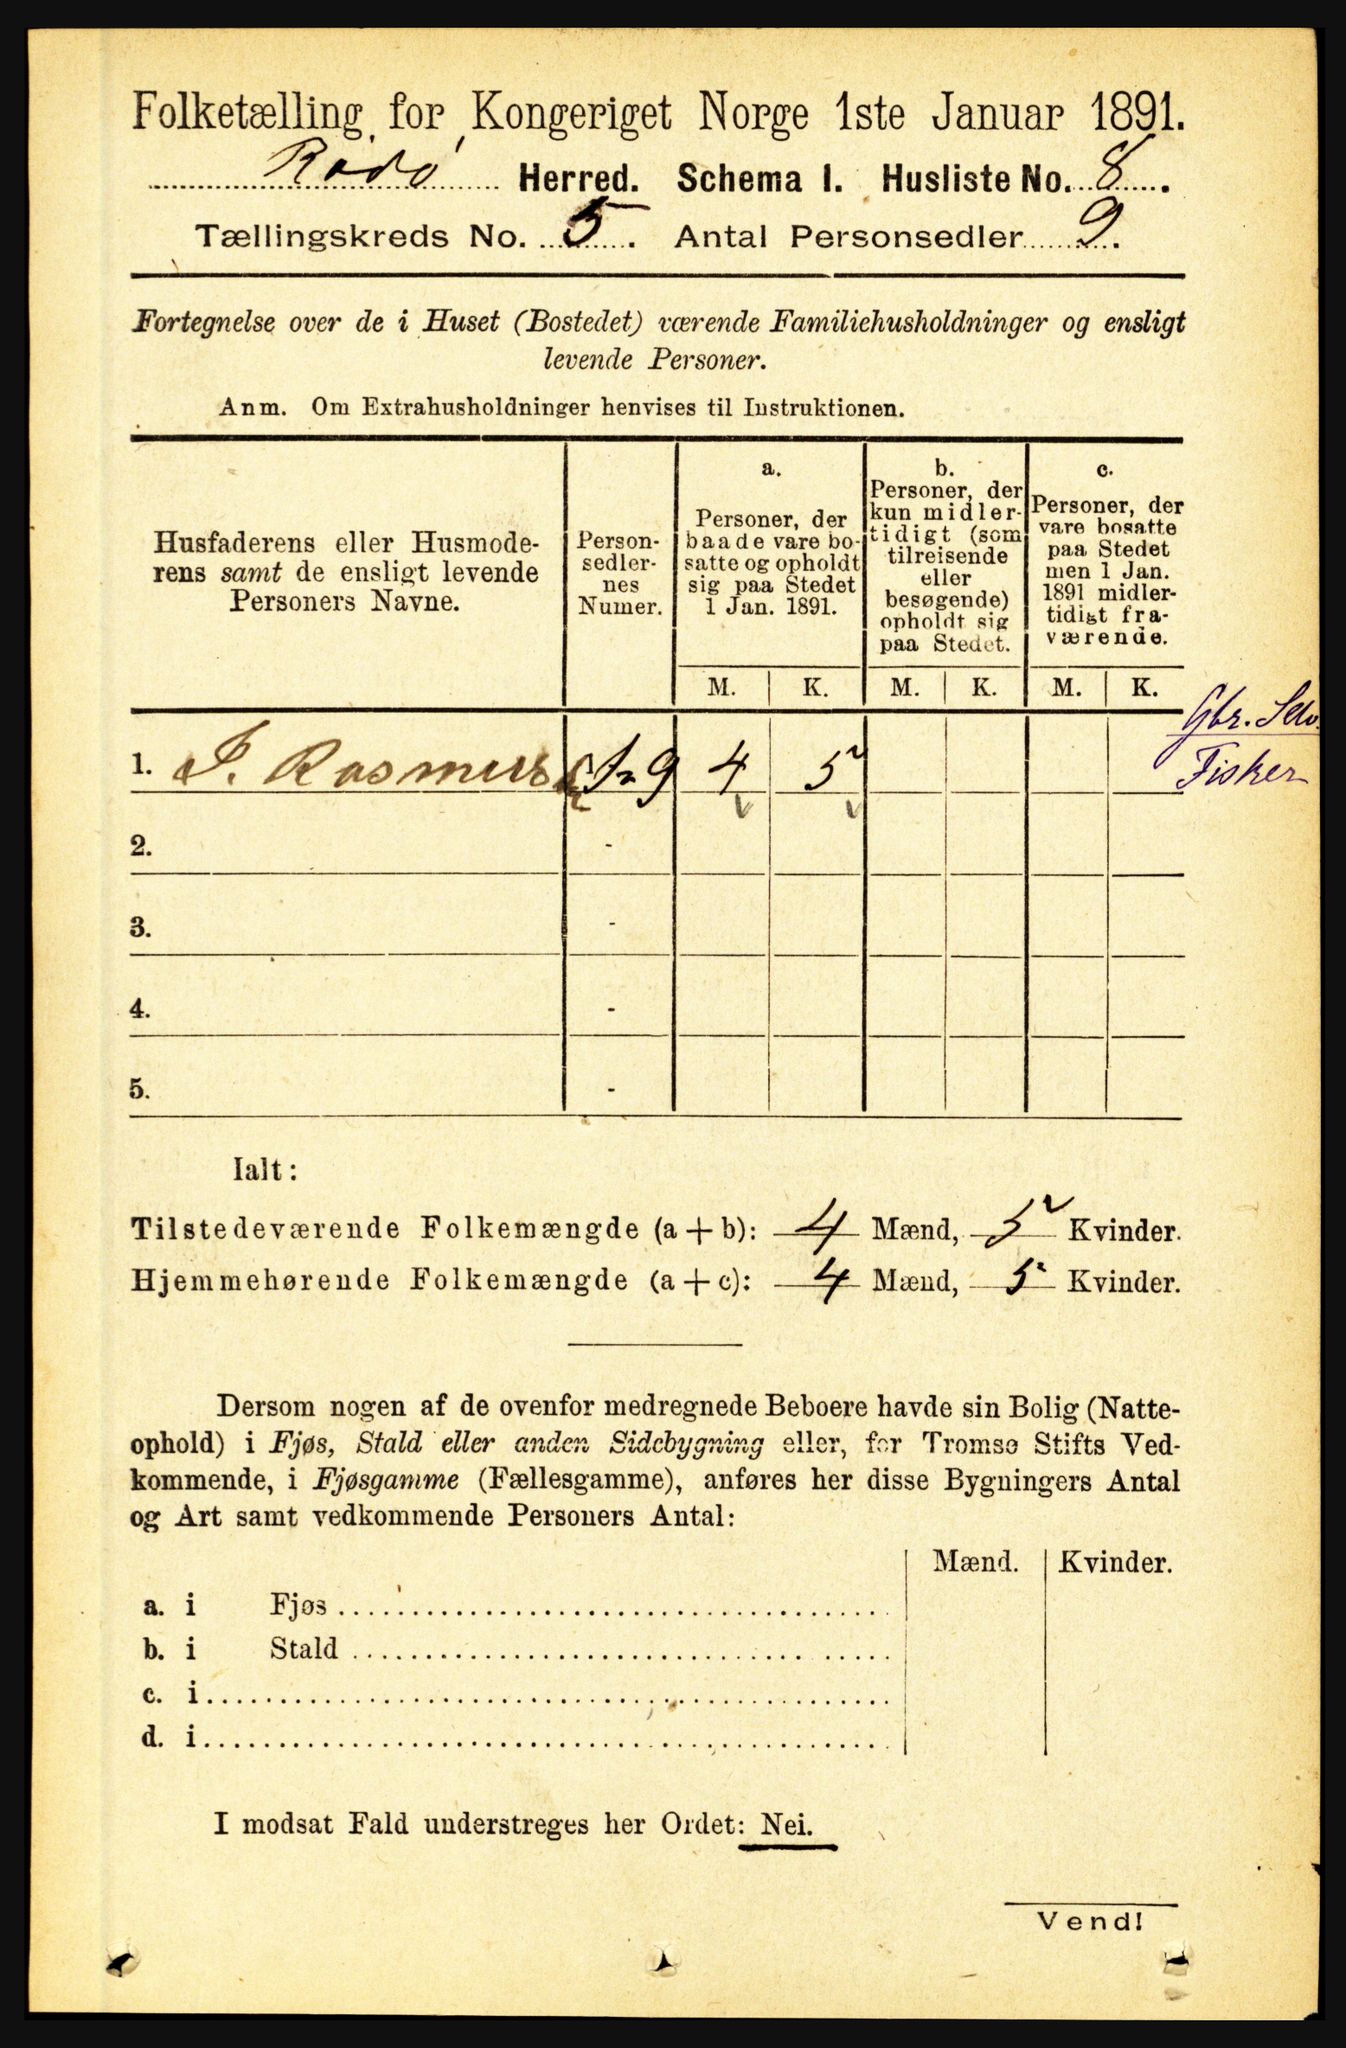 Folketælling for Kongeriget Norge 1ste Januar 1891.
Rødø Herred. Schema I. Husliste No. 8.
Tællingskreds No. 5. Antal Personsedler 9.
Fortegnelse over de i Huset (Bostedet) værende Familiehusholdninger og ensligt
levende Personer.
Anm. Om Extrahusholdninger henvises til Instruktionen.
Husfaderens eller Husmode-
rens samt de ensligt levende
Personers Navne.
Person-
sedler-
nes
Numer.
a.
Personer, der
baade vare bo-
satte og opholdt
sig paa Stedet
1 Jan. 1891.
b.
Personer, der
kun midler-
tidigt (som
tilreisende
eller
besøgende)
opholdt sig
paa Stedet.
c.
Personer, der
vare bosatte
paa Stedet
men 1 Jan.
1891 midler-
tidigt fra-
værende.
M. K. M. K. M. K.
Gbr. Selv.
1. Rasmus 1-9 4 5
Fisker
2. -
3. -
4. -
5. -
Ialt:
Tilstedeværende Folkemængde (a+b): 4 Mænd, 5 Kvinder.
Hjemmehørende Folkemængde (a+c): 4 Mænd, 5 Kvinder.
Dersom nogen af de ovenfor medregnede Beboere havde sin Bolig (Natte-
ophold) i Fjøs, Stald eller anden Sidebygning eller, for Tromsø Stifts Ved-
kommende, i Fjøsgamme (Fællesgamme), anføres her disse Bygningers Antal
og Art samt vedkommende Personers Antal:
Mænd. Kvinder.
a. i Fjøs
b. i Stald
c. i
d. i
I modsat Fald understreges her Ordet: Nei.
Vend!